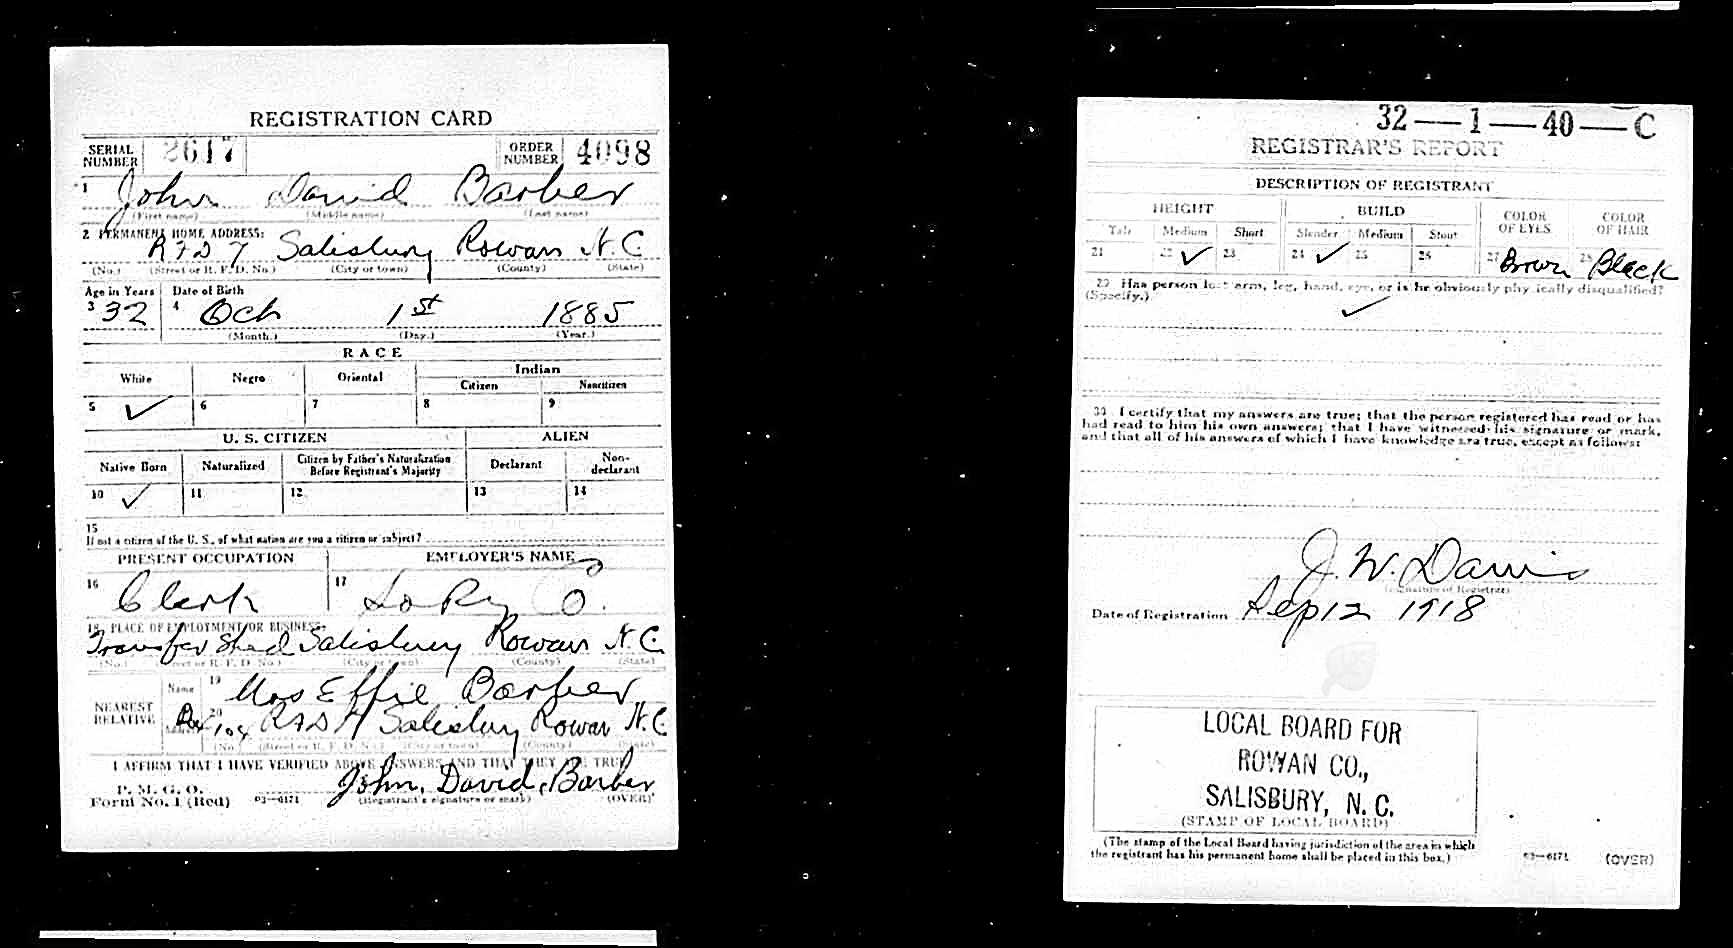 REGISTRATION CARD
SERIAL NUMBER 2617 ORDER NUMBER 4098
1 John David Barber
(First name) (Middle name) (Last name)
2 PERMANENT HOME ADDRESS:
RFD 7 Salisbury Rowan N.C.
(No.) (Street or R. F. D. No.) (City or town) (County) (State)
Age in Years Date of Birth
3 32 4 Oct 1st 1885
(Month.) (Day.) (Year.)
RACE
White Negro Oriental Indian
Citizen Noncitizen
5 ✓ 6 7 8 9
U. S. CITIZEN ALIEN
Native Born Naturalized Citizen by Father's Naturalization Before Registrant's Majority Declarant Non-declarant
10 ✓ 11 12 13 14
15
If not a citizen of the U. S., of what nation are you a citizen or subject?
PRESENT OCCUPATION EMPLOYER'S NAME
16 Clerk 17 So Ry Co.
18 PLACE OF EMPLOYMENT OR BUSINESS:
Transfer Shed Salisbury Rowan N.C.
(No.) (Street or R. F. D. No.) (City or town) (County) (State)
NEAREST RELATIVE Name 19 Mrs Effie Barber
Address 20 RFD Salisbury Rowan N.C.
(No.) (Street or R. F. D. No.) (City or town) (County) (State)
I AFFIRM THAT I HAVE VERIFIED ABOVE ANSWERS AND THAT THEY ARE TRUE
P. M. G. O.
Form No. 1 (Red) 03—6171 John. David. Barber
(Registrant's signature or mark) (OVER)
32—1—40—C
REGISTRAR'S REPORT
DESCRIPTION OF REGISTRANT
HEIGHT BUILD COLOR OF EYES COLOR OF HAIR
Tall Medium Short Slender Medium Stout
21 22 ✓ 23 24 ✓ 25 26 27 Brown 28 Black
29 Has person lost arm, leg, hand, eye, or is he obviously physically disqualified?
(Specify.) ✓
30 I certify that my answers are true; that the person registered has read or has
had read to him his own answers; that I have witnessed his signature or mark,
and that all of his answers of which I have knowledge are true, except as follows:
J. W. Davis
(Signature of Registrar)
Date of Registration Sep 12 1918
LOCAL BOARD FOR
ROWAN CO.,
SALISBURY, N. C.
(STAMP OF LOCAL BOARD)
(The stamp of the Local Board having jurisdiction of the area in which
the registrant has his permanent home shall be placed in this box.)
03—6171 (OVER)